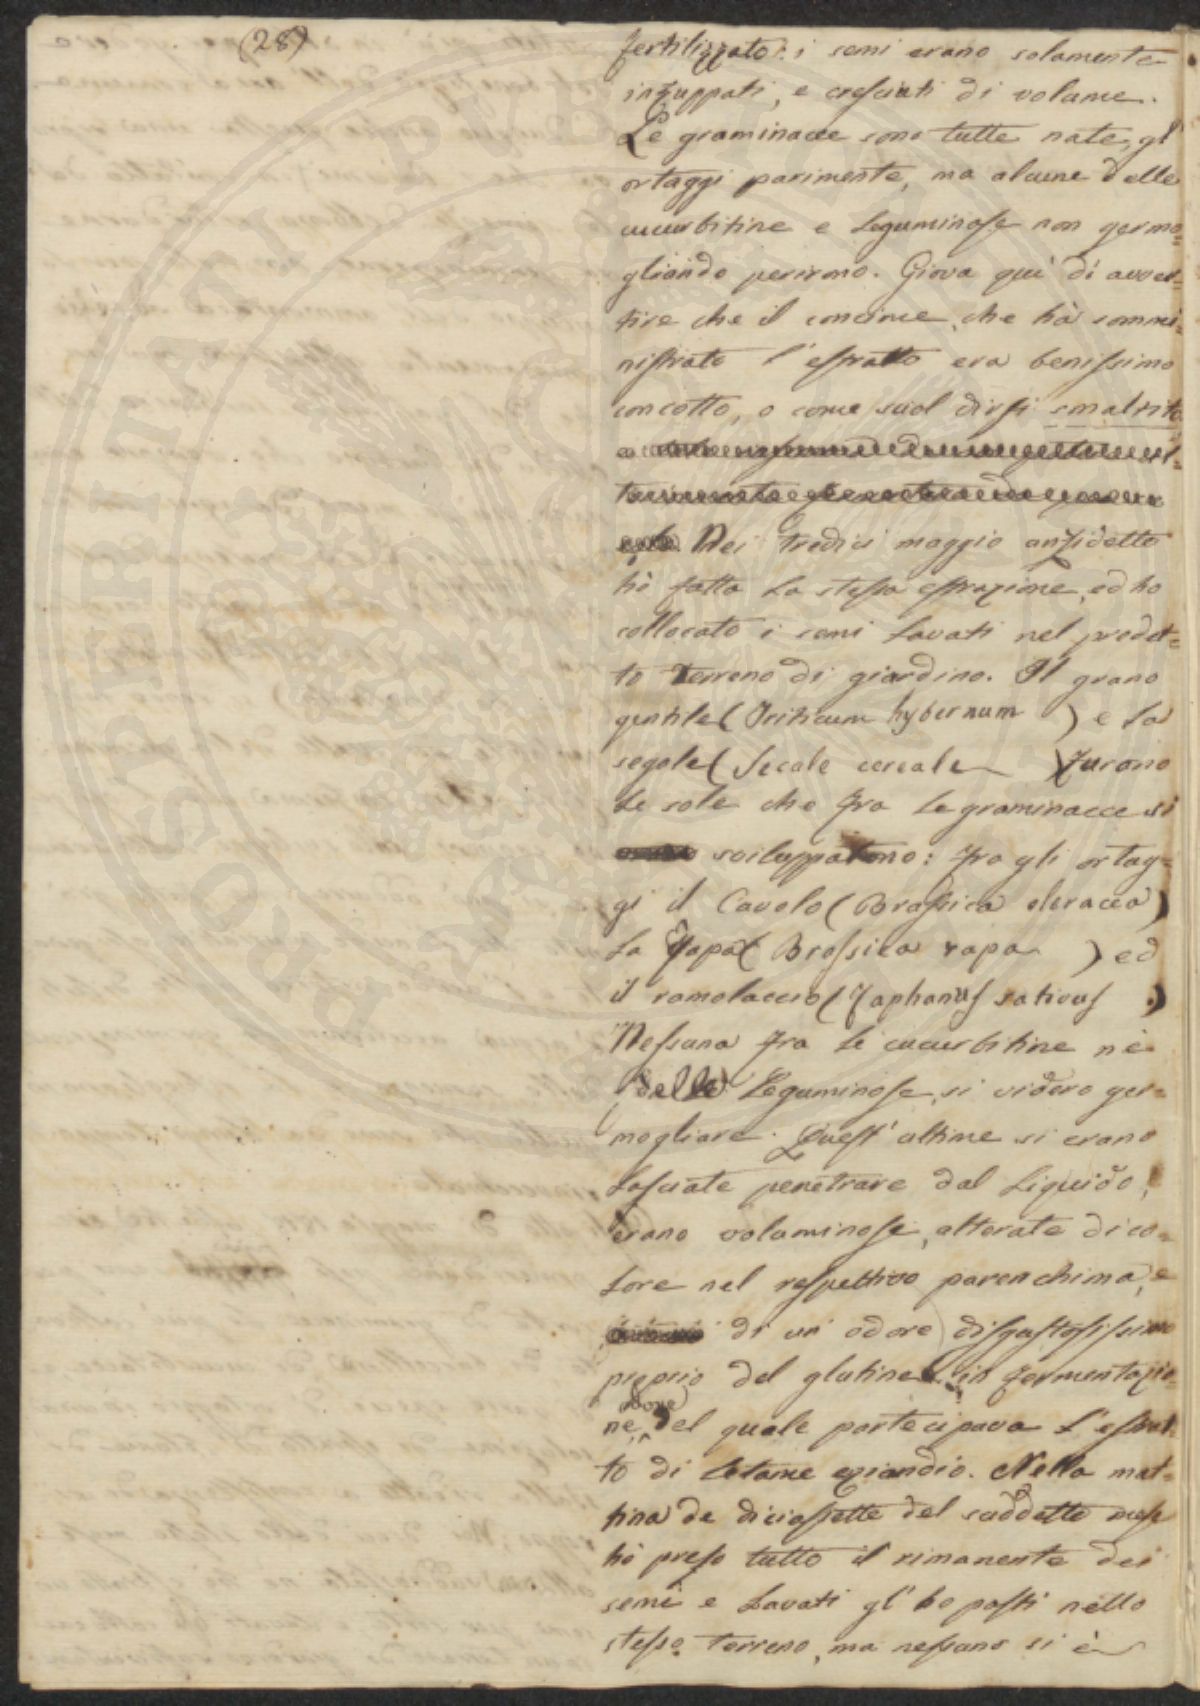 (28)
fertilizzato: i semi erano solamente
inzuppati, e cresciuti di volume.
Le graminacee sono tutte nate, gl'
ortaggi parimente, ma alcune delle
cucurbitine e leguminose non germo=
gliando perirono. Giova quì di avver=
tire che il concime, che hà sommi=
nistrato l'estratto era benissimo
concotto, o come suol dirsi smaltito
Nei tredici maggio anzidetto
hò fatta la stessa estrazione, ed ho
collocato i semi lavati nel predet=
to terreno di giardino. Il grano
gentile (Triticum hybernum) e la
segale (Secale cereale) furono
le sole che fra le graminacee si
svilupparono: fra gli ortag=
gi il Cavolo (Brassica oleracea)
la Rapa (Brassica rapa) ed
il ramolaccio (Raphanus sativus)
Nessuna fra le cucurbitine nè
delle Leguminose, si videro ger=
mogliare. Quest'ultime si erano
lasciate penetrare dal liquido,
erano voluminose, alterate di co=
lore nel respettivo parenchima, e
di un odore disgustosissimo
proprio del glutine in fermentazio=
ne, odore del quale partecipava l'estrat=
to di letame eziandio. Nella mat=
tina de diciassette del suddetto mese
hò preso tutto il rimanente dei
semi e lavati gl'ho posti nello
stesso terreno, ma nessuno si è
POSPERITATI PUBLICAE